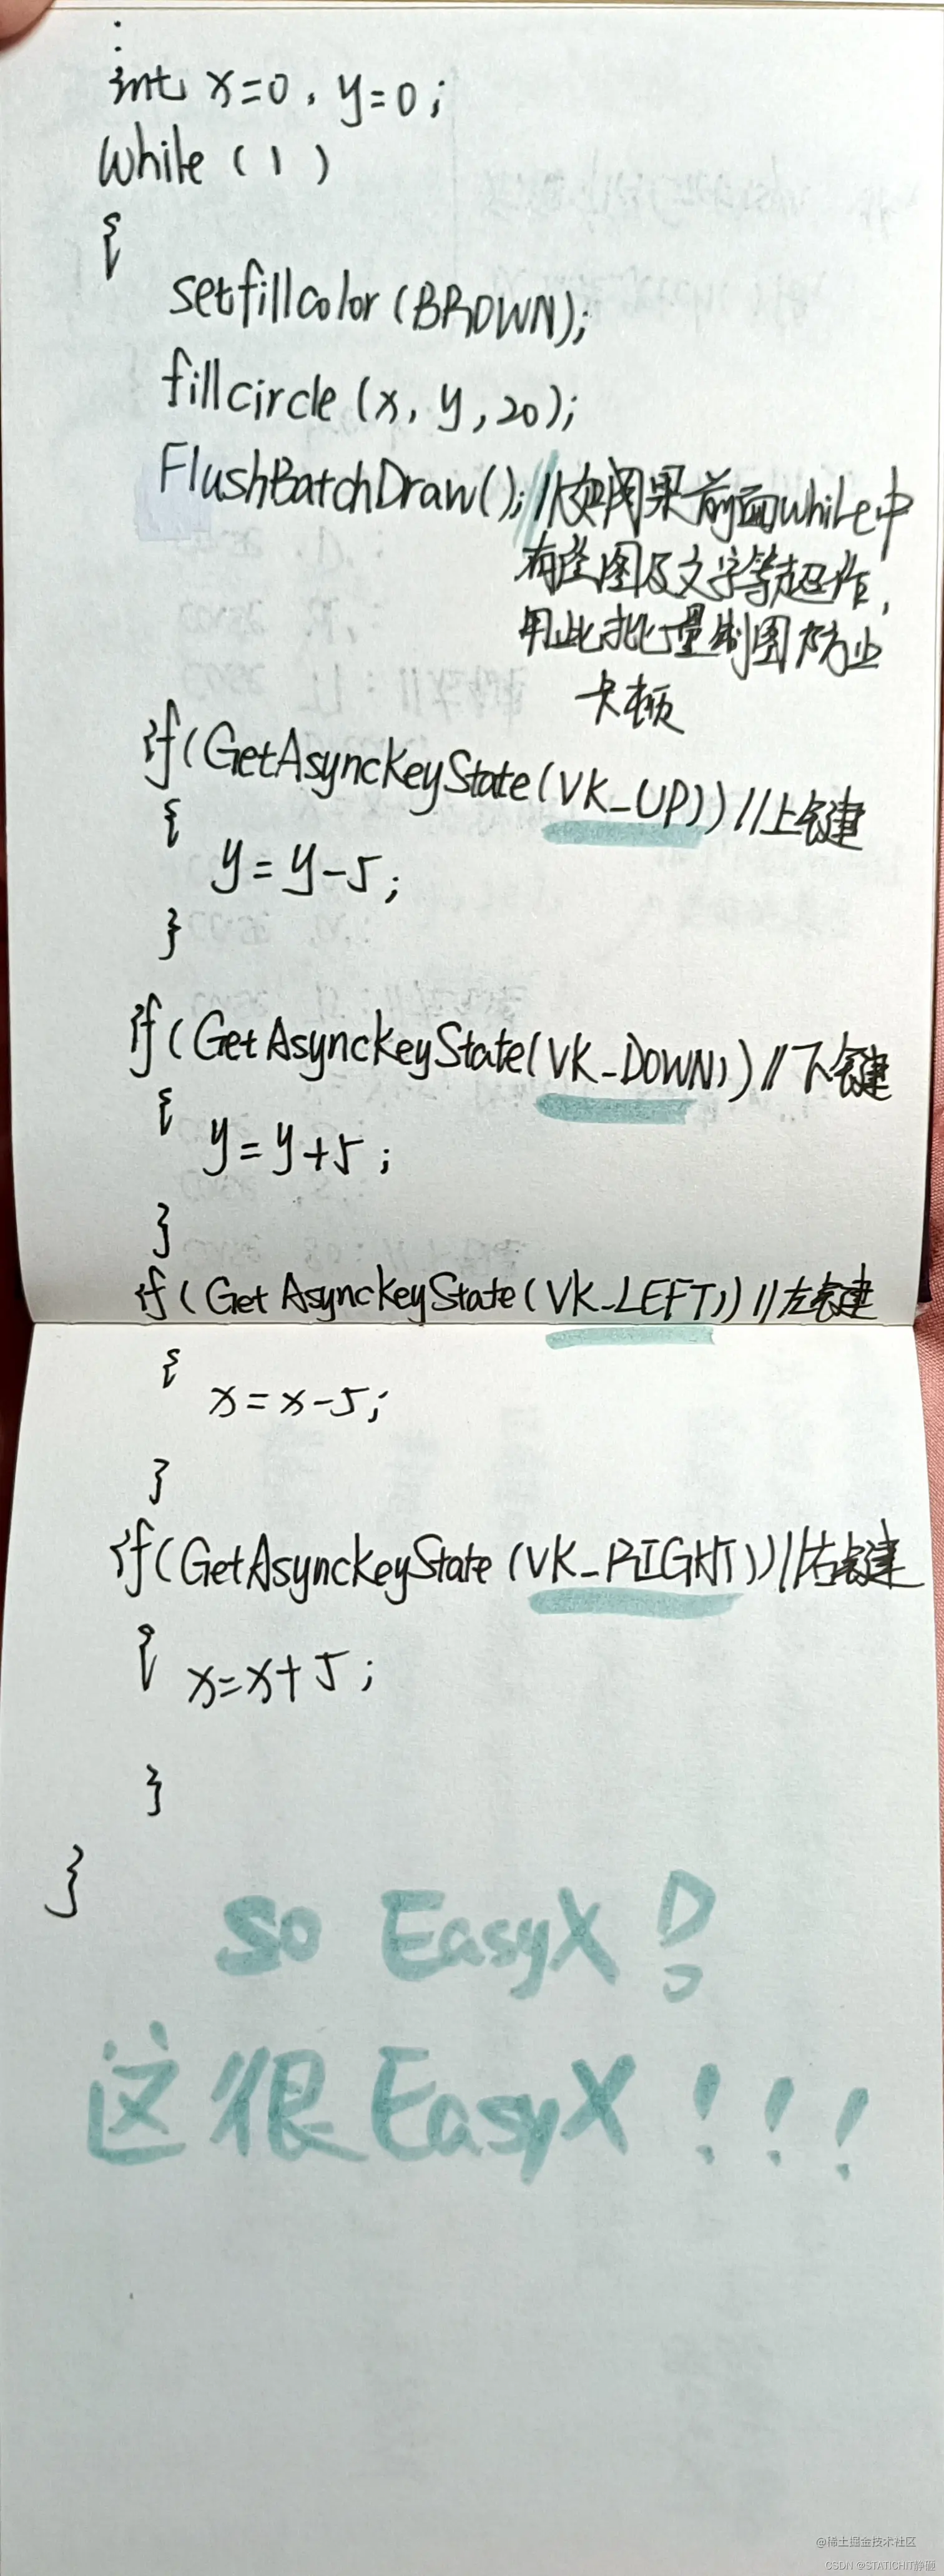 ⋮
int x=0, y=0;
while (1)
{
setfillcolor(BROWN);
fillcircle(x, y, 20);
FlushBatchDraw(); //如果前面while中
有些图及文字等起作,
用此批量制图防止
卡顿
if(GetAsyncKeyState(VK_UP)) //上键
{
y = y-5;
}
if(GetAsyncKeyState(VK_DOWN)) //下键
{
y = y+5;
}
if(GetAsyncKeyState(VK_LEFT)) //左键
{
x = x-5;
}
if(GetAsyncKeyState(VK_RIGHT)) //右键
{
x=x+5;
}
}
so EasyX!
这很EasyX!!!
@稀土掘金技术社区
CSDN @STATICHIT静砸